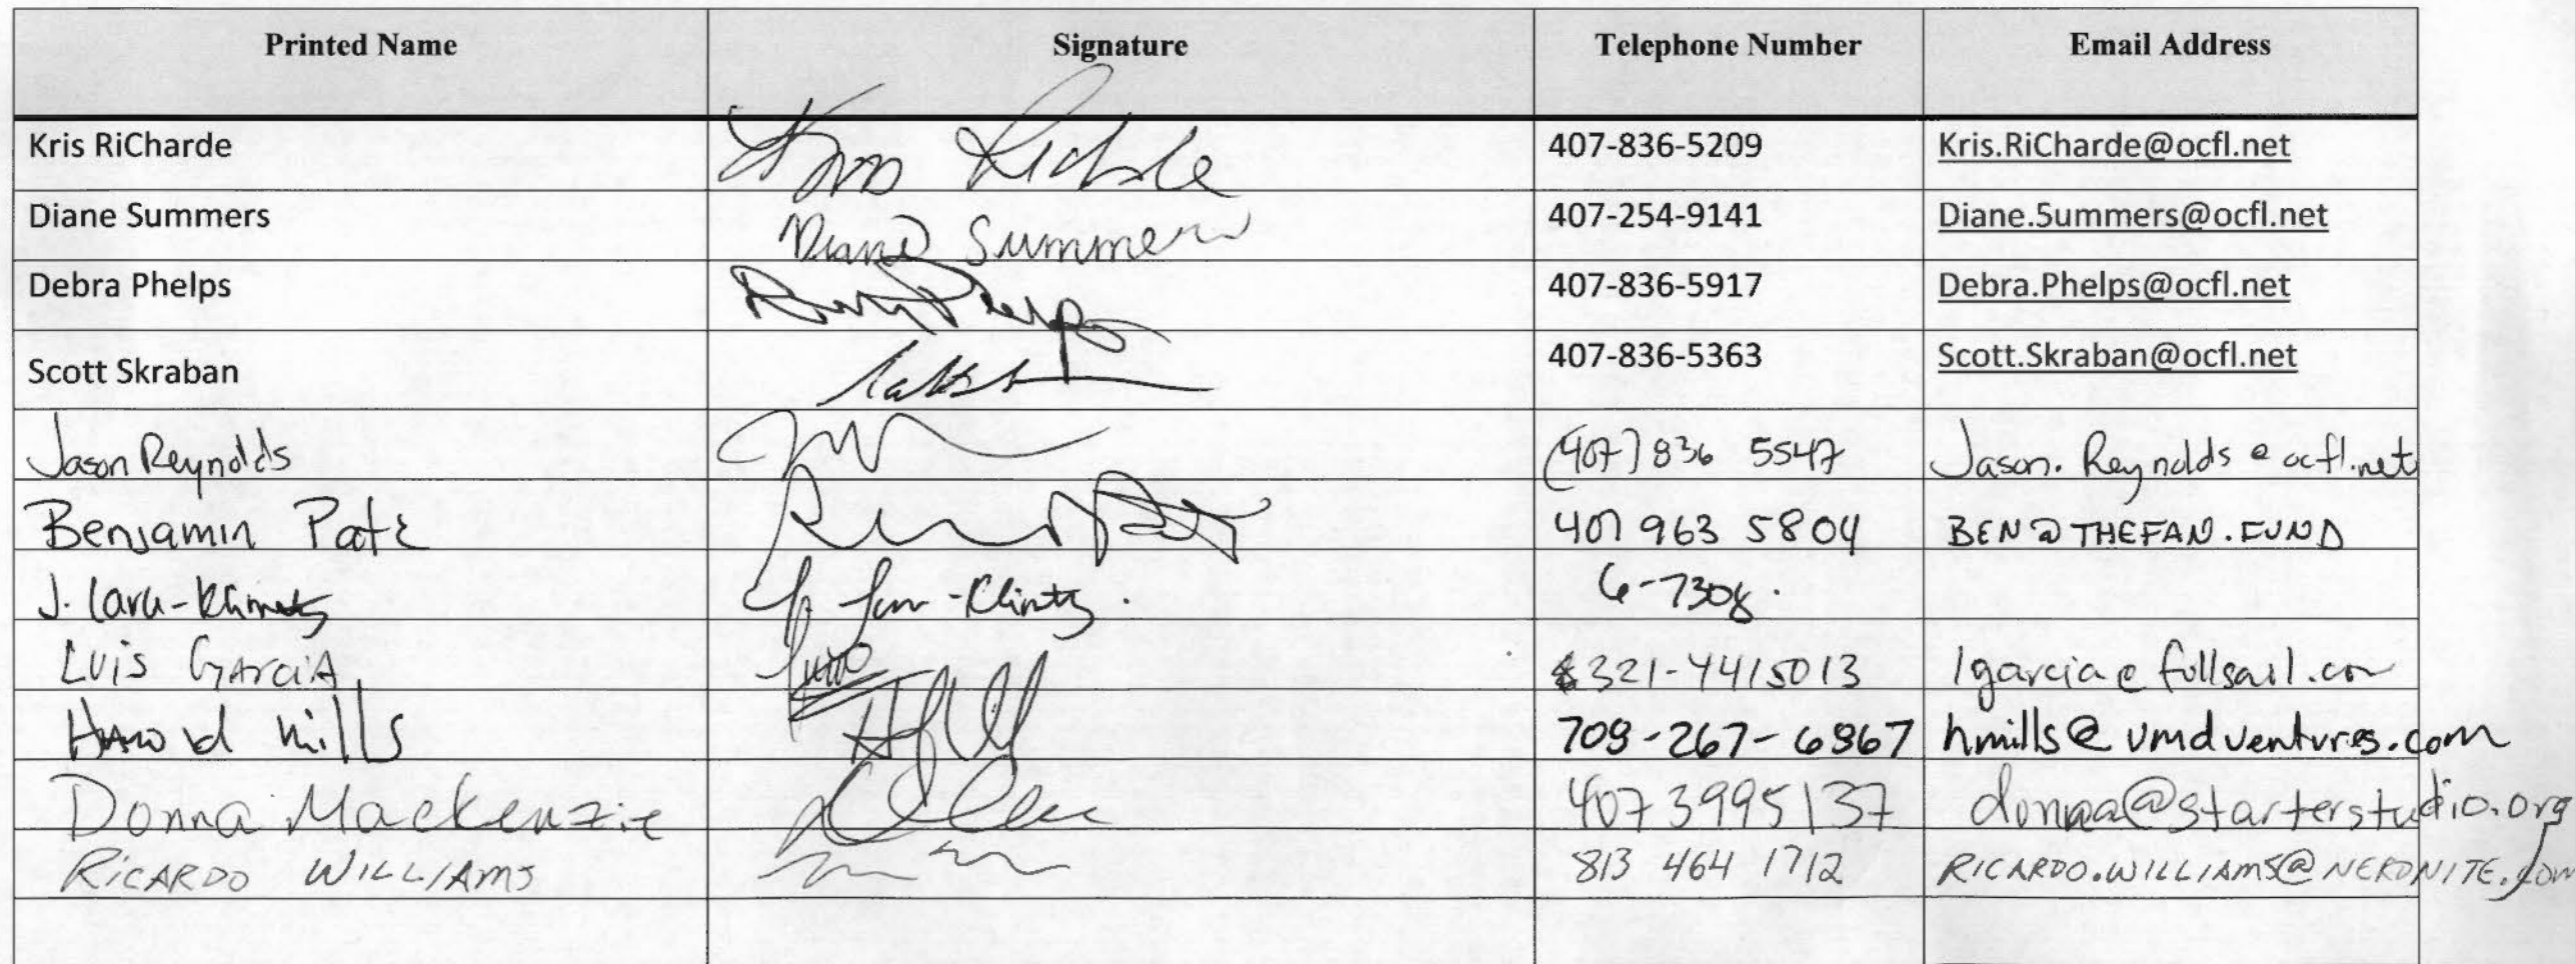 Printed Name Signature Telephone Number Email Address
Kris RiCharde 407-836-5209 Kris.RiCharde@ocfl.net
Diane Summers Diane Summers 407-254-9141 Diane.5ummers@ocfl.net
Debra Phelps 407-836-5917 Debra.Phelps@ocfl.net
Scott Skraban 407-836-5363 Scott.Skraban@ocfl.net
Jason Reynolds (407) 836 5547 Jason.Reynolds@ocfl.net
Benjamin Pate 407 963 5804 BEN@THEFAN.FUND
J. 6-7308.
Luis Garcia 321-4415013 lgarcia@fullsail.com
Harold Mills 708-267-6867 hmills@vmdventures.com
Donna Mackenzie 407 3995137 donna@starterstudio.org
RICARDO WILLIAMS 813 464 1712 RICARDO.WILLIAMS@NERDNITE.com